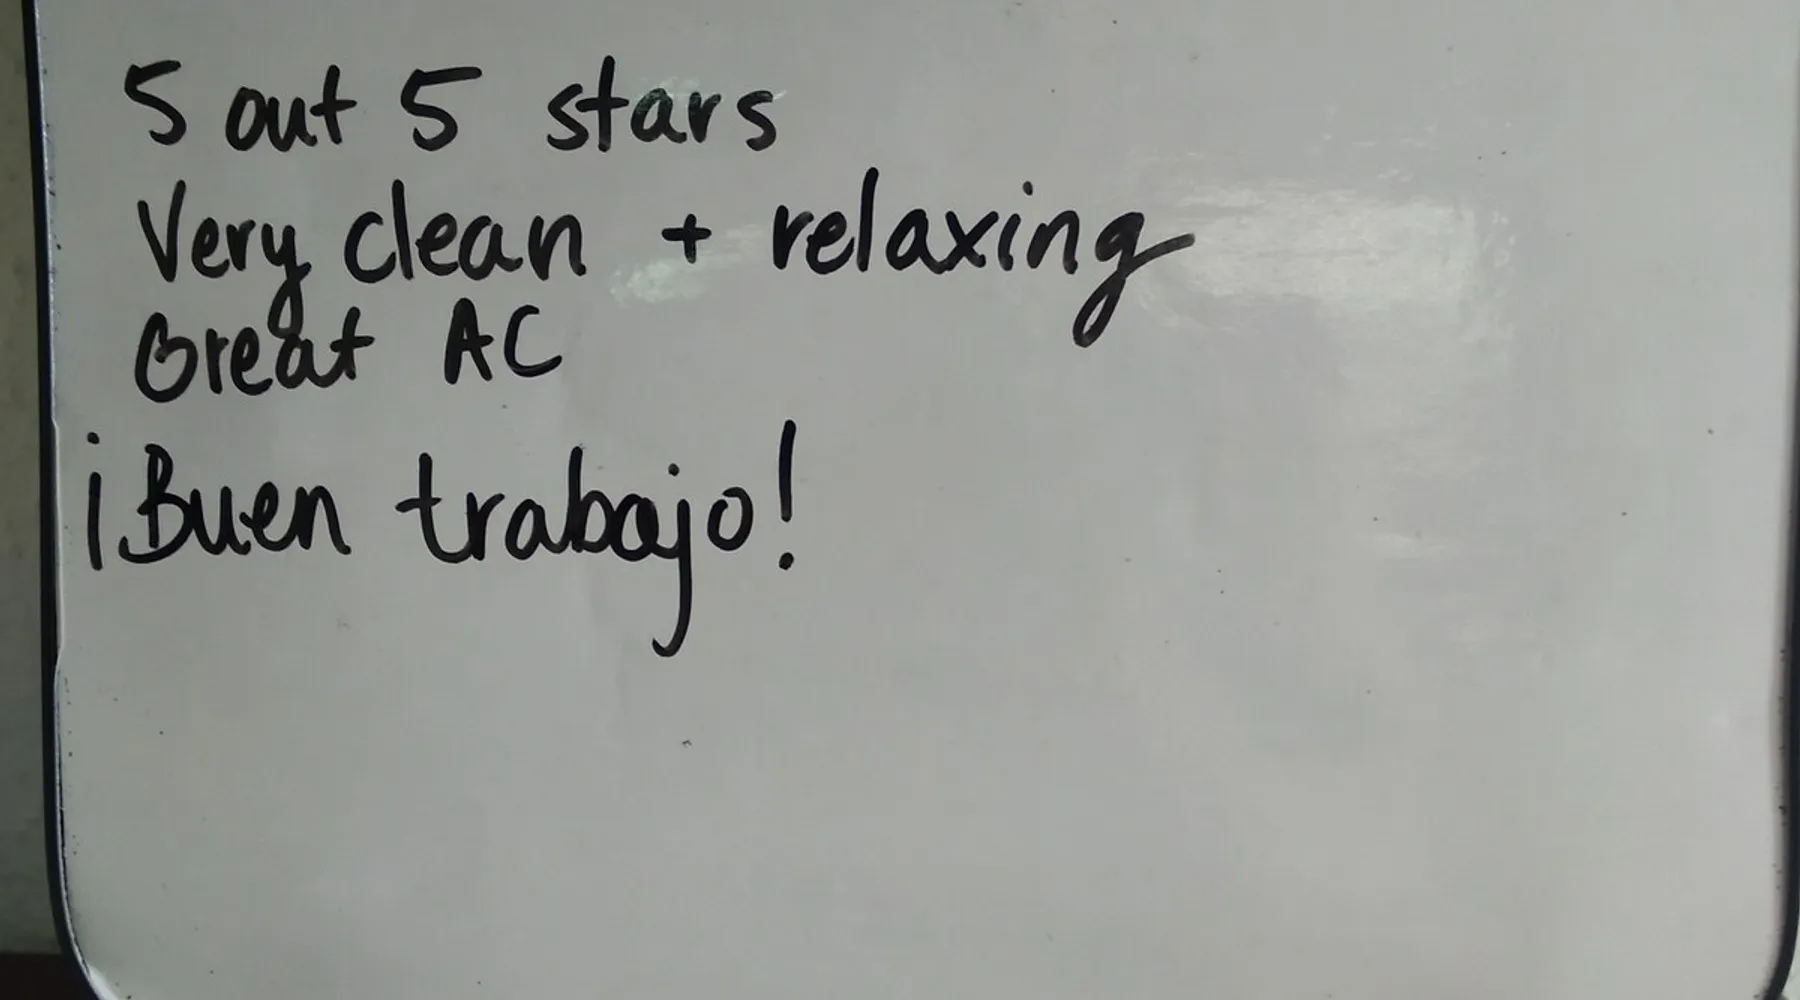 5 out 5 stars
Very clean + relaxing
Great AC
¡Buen trabajo!